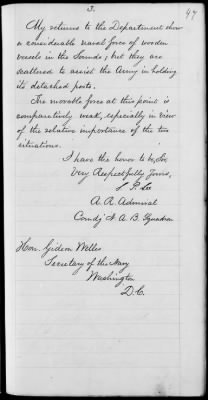 3.
47
My returns to the Department show
a considerable naval force of wooden
vessels in the Sounds; but they are
scattered to assist the Army in holding
its detached posts.
The movable force at this point is
comparatively weak, especially in view
of the relative importance of the two
situations.
I have the honor to be, Sir,
Very Respectfully Yours,
S. P. Lee
A. R. Admiral
Comdg N. A. B. Squadron
Hon. Gideon Welles
Secretary of the Navy
Washington
D.C.